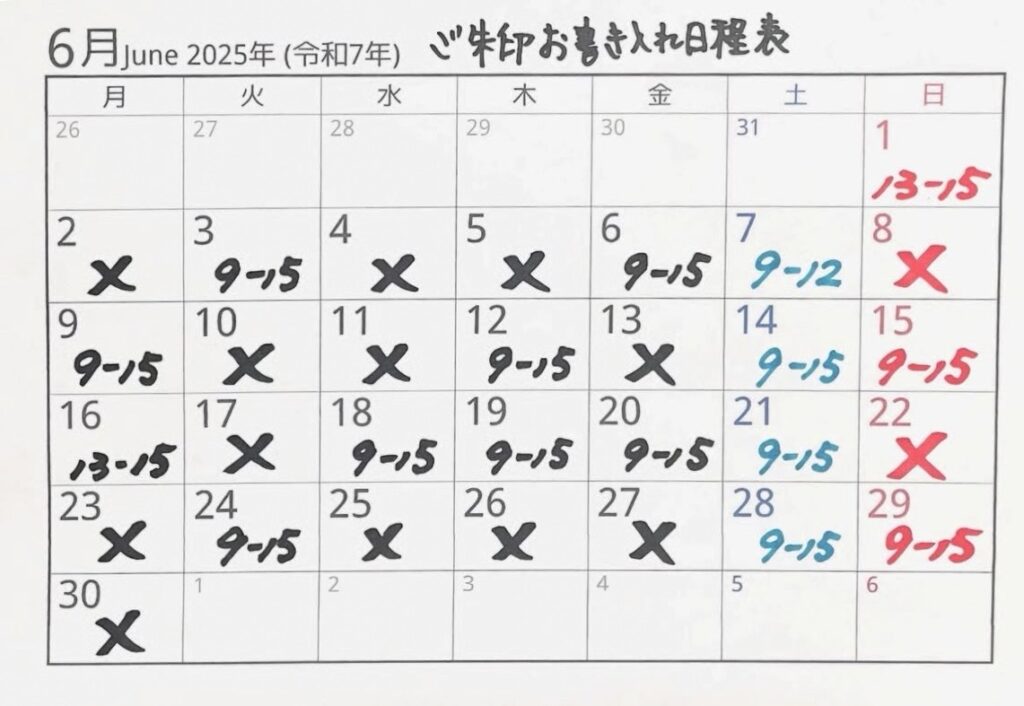 6月 June 2025年 (令和7年) ご朱印お書き入れ日程表
月 火 水 木 金 土 日
26 27 28 29 30 31 1
13-15
2 3 4 5 6 7 8
X 9-15 X X 9-15 9-12 X
9 10 11 12 13 14 15
9-15 X X 9-15 X 9-15 9-15
16 17 18 19 20 21 22
13-15 X 9-15 9-15 9-15 9-15 X
23 24 25 26 27 28 29
X 9-15 X X X 9-15 9-15
30 1 2 3 4 5 6
X